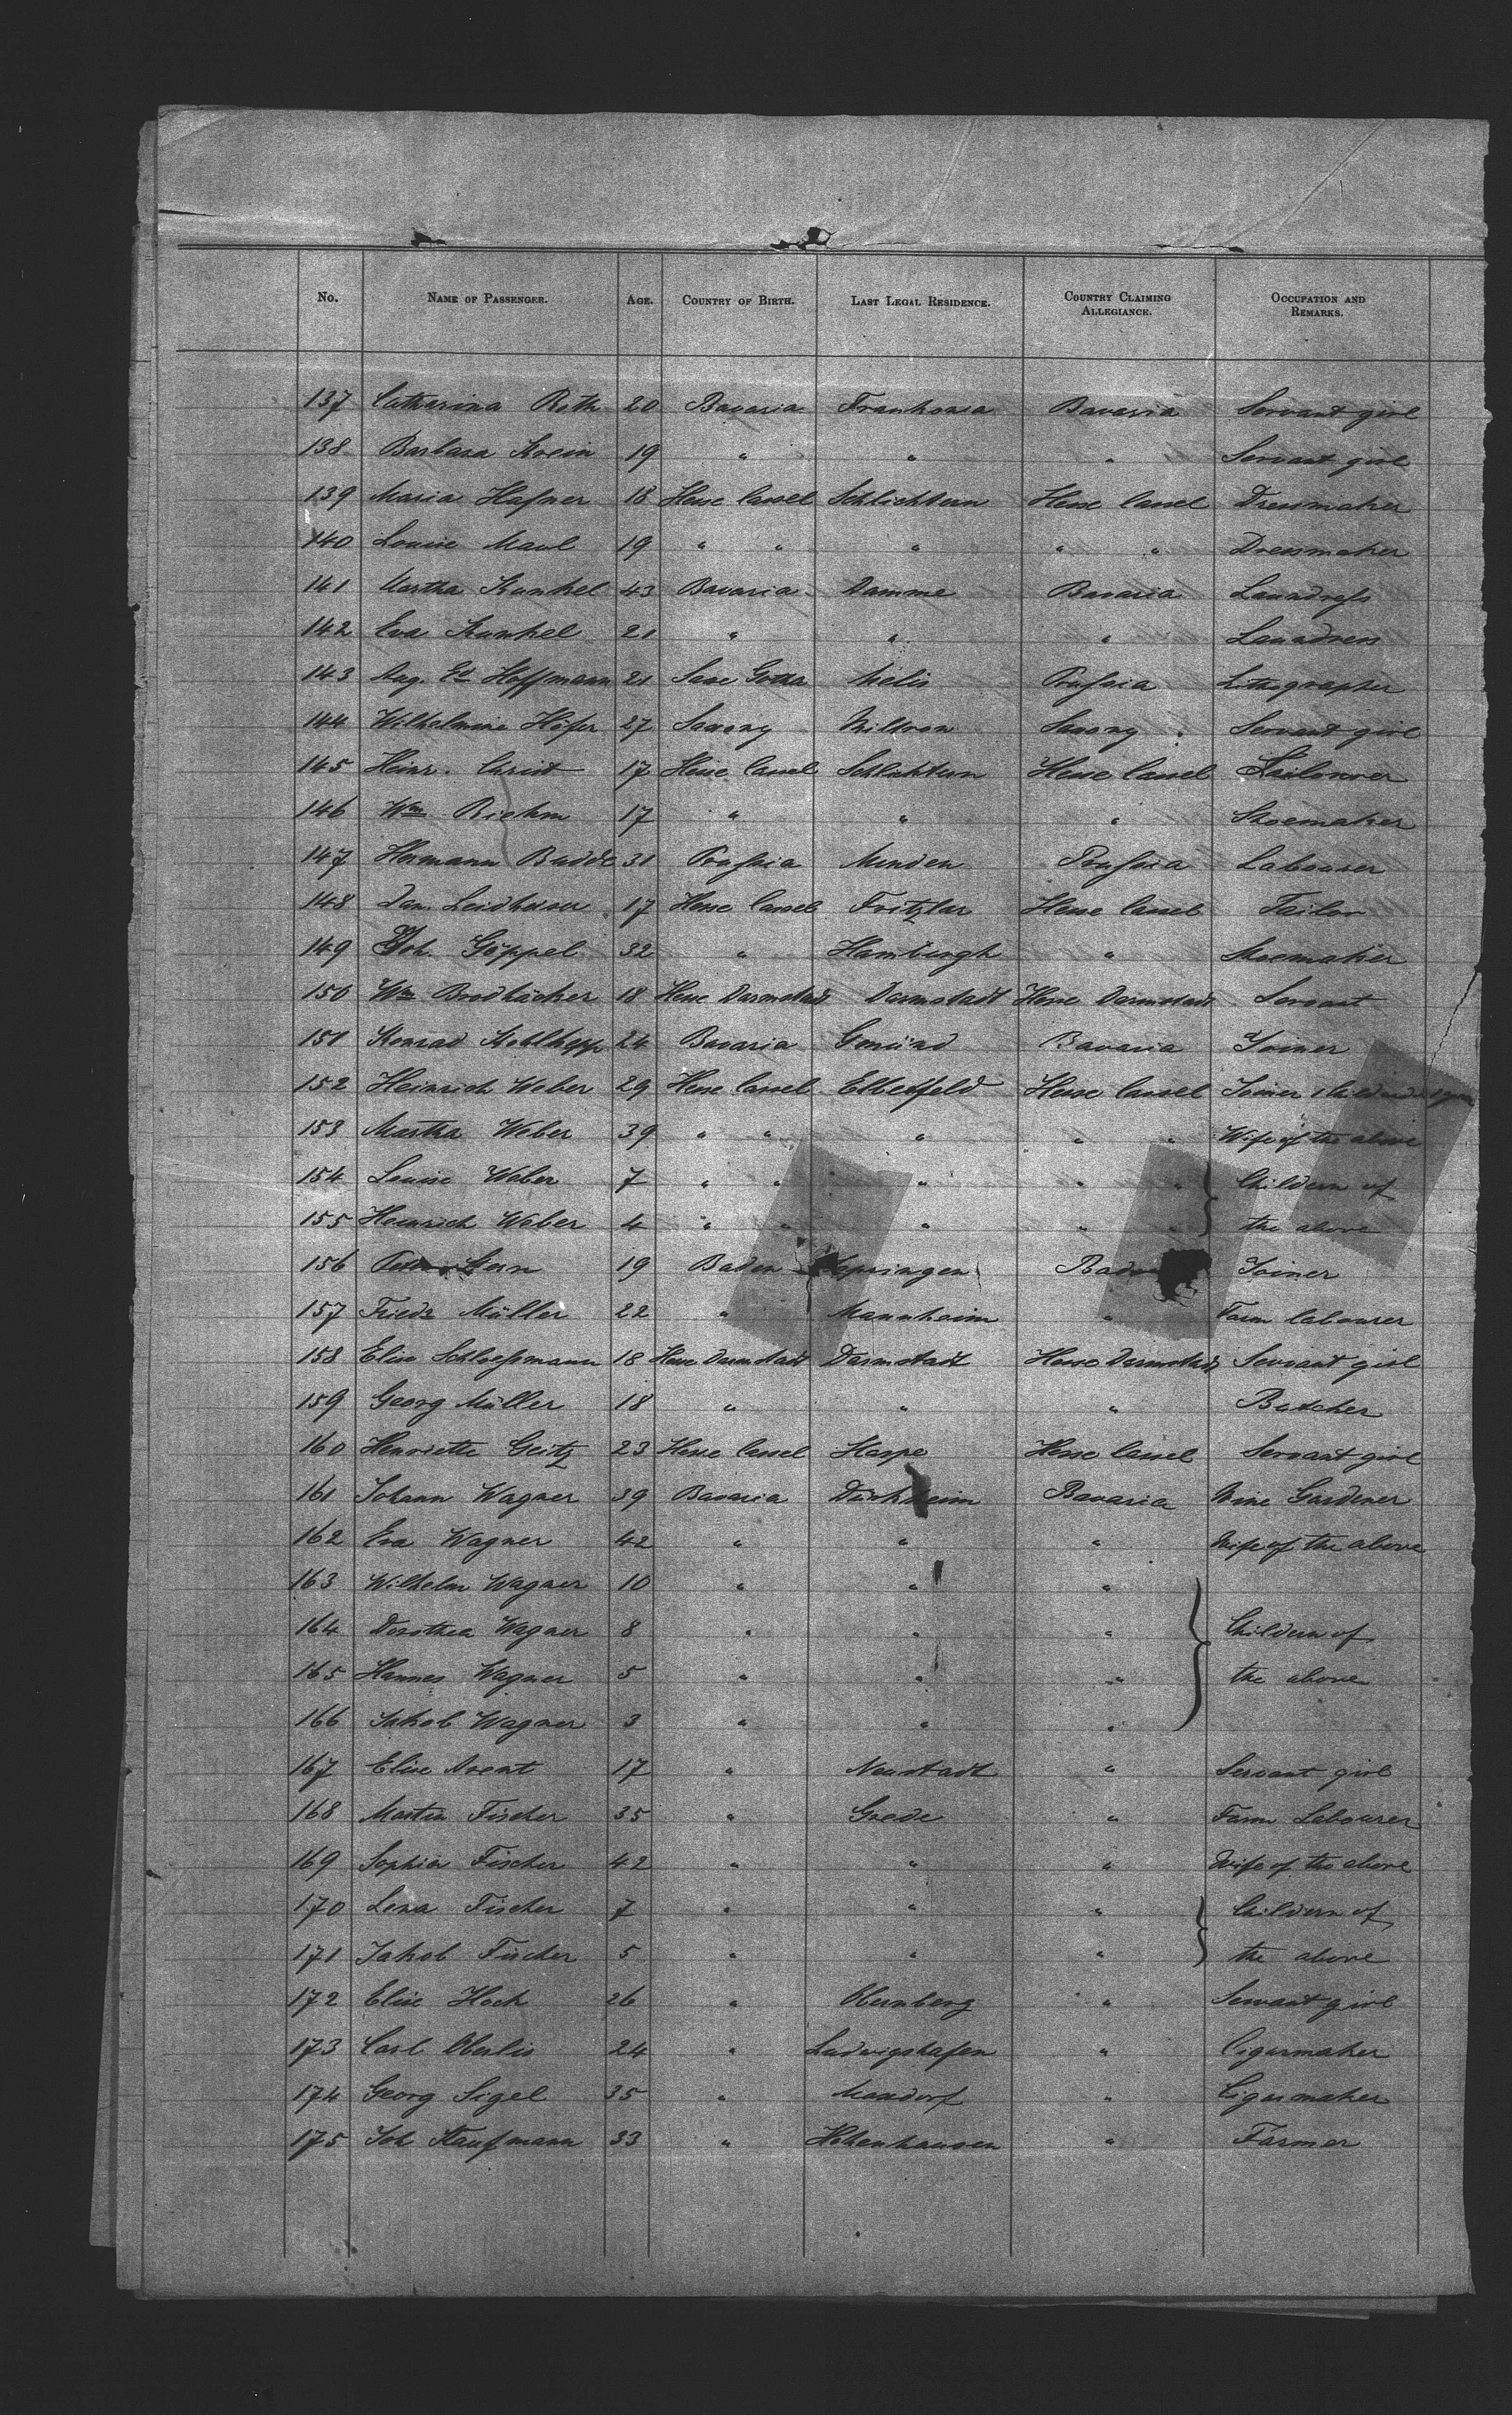 No. NAME OF PASSENGER. AGE. COUNTRY OF BIRTH. LAST LEGAL RESIDENCE. COUNTRY CLAIMING ALLEGIANCE. OCCUPATION AND REMARKS.
137 Catherina Roth 20 Bavaria Frankonia Bavaria Servant girl
138 Barbara 19 " " " Servant girl
139 Maria Hafner 18 Hesse Cassel Schlichtern Hesse Cassel Dressmaker
140 Louise Maul 19 " " " " " Dressmaker
141 Martha Kunkel 43 Bavaria Damme Bavaria Laundress
142 Eva Kunkel 21 " " " Laundress
143 Aug. Ed Hoffmann 21 Saxe Gotha Melis Prussia Lithographer
144 Wilhelmine Höfer 27 Saxony Saxony Servant girl
145 Heinr. Christ 17 Hesse Cassel Schlichtern Hesse Cassel
146 Wm Riehm 17 " " " Shoemaker
147 Hermann Budde 31 Prussia Minden Prussia Labourer
148 Dan. Leidheiser 17 Hesse Cassel Fritzlar Hesse Cassel Tailor
149 Joh. Göppel 32 " Hamburgh " Shoemaker
150 Wm Brodhäcker 18 Hesse Darmstadt Darmstadt Hesse Darmstadt Servant
151 Konrad Kohlhepp 24 Bavaria Gmünd Bavaria Joiner
152 Heinrich Weber 29 Hesse Cassel Elberfeld Hesse Cassel Joiner 1 Child under 1 year
153 Martha Weber 39 " " " " " Wife of the above
154 Louise Weber 7 " " " " " Children of
155 Heinrich Weber 4 " " " " " the above
156 Stern 19 Baden Joiner
157 Friedr Müller 22 " Mannheim " Farm labourer
158 Elise Schloessmann 18 Hesse Darmstadt Darmstadt Hesse Darmstadt Servant girl
159 Georg Müller 18 " " " Butcher
160 Henriette Geitz 23 Hesse Cassel Haspe Hesse Cassel Servant girl
161 Johann Wagner 39 Bavaria Dürkheim Bavaria Wine Gardener
162 Eva Wagner 42 " " " Wife of the above
163 Wilhelm Wagner 10 " " "
164 Dorothea Wagner 8 " " " Children of
165 Hannes Wagner 5 " " " the above
166 Jakob Wagner 3 " " "
167 Elise 17 " Neustadt " Servant girl
168 Martin Fischer 35 " " Farm Labourer
169 Sophia Fischer 42 " " " Wife of the above
170 Lena Fischer 7 " " " Children of
171 Jakob Fischer 5 " " " the above
172 Elise Hoch 26 " " Servant girl
173 Carl Oberlis 24 " Ludwigshafen " Cigarmaker
174 Georg Sigel 35 " Maxdorf " Cigarmaker
175 Joh Kaufmann 33 " Hohenhausen " Farmer